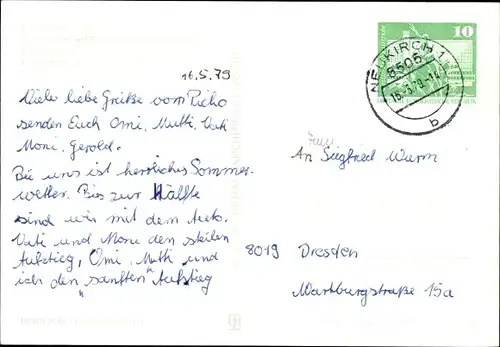 16.5.79
Viele liebe Grüße vom Picho
senden Euch Omi, Mutti, Vati
Moni, Gerold.
Bei uns ist herrliches Sommer-
wetter. Bis zur Hälfte
sind wir mit dem Auto.
Vati und Moni den steilen
Aufstieg, Omi, Mutti und
ich den "sanften" Aufstieg
10
NEUKIRCH 1
8505
b
Fam.
An Siegfried Wurm
8019 Dresden
Wartburgstraße 15a